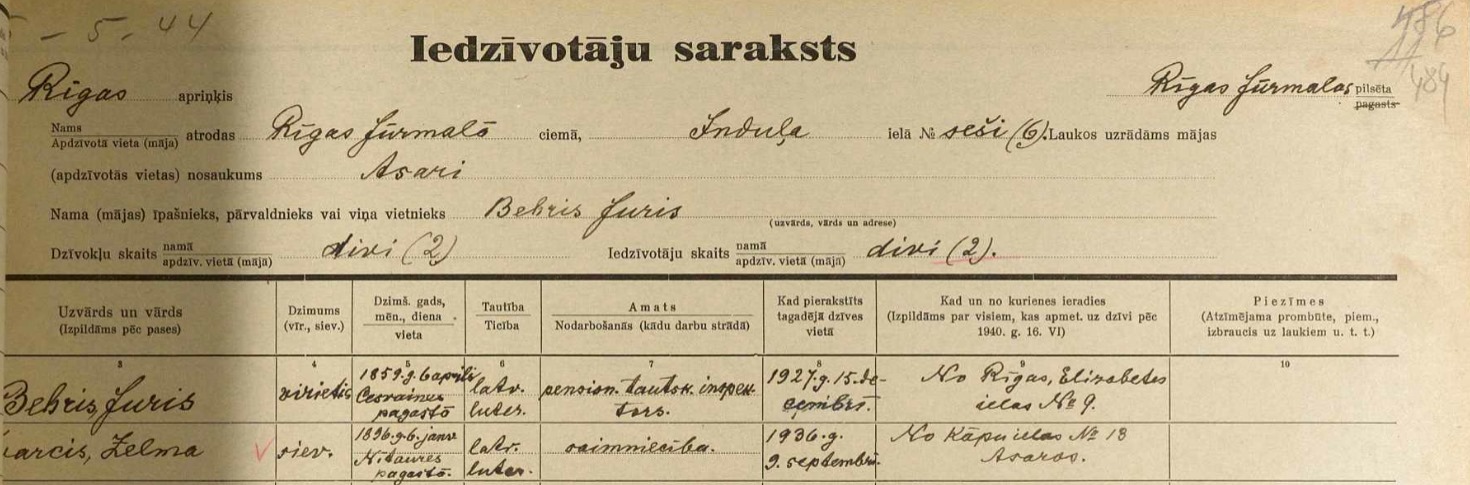 - 5 - 44
Iedzīvotāju saraksts
486
484
Rīgas apriņķis
Rīgas Jūrmalas pilsēta
pagasts
Nams
Apdzīvota vieta (māja) atrodas Rīgas Jūrmalā ciemā, Induļa ielā № seši (6). Laukos uzrādāms mājas
(apdzīvotās vietas) nosaukums Asari
Nama (mājas) īpašnieks, pārvaldnieks vai viņa vietnieks Behris Juris
(uzvārds, vārds un adrese)
Dzīvokļu skaits namā
apdzīv. vietā (mājā) divi (2) Iedzīvotāju skaits namā
apdzīv. vietā (mājā) divi (2).
Uzvārds un vārds
(Izpildāms pēc pases)
Dzimums
(vīr., siev.)
Dzimš. gads,
mēn., diena
vieta
Tautība
Ticība
Amats
Nodarbošanās (kādu darbu strādā)
Kad pierakstīts
tagadējā dzīves
vietā
Kad un no kurienes ieradies
(Izpildāms par visiem, kas apmet. uz dzīvi pēc
1940. g. 16. VI)
Piezīmes
(Atzīmējama prombūte, piem.,
izbraucis uz laukiem u. t. t.)
3 4 5 6 7 8 9 10
Behris, Juris
vīrietis
1859.g. 6 aprīlī
Cesvaines
pagastā
latv.
luter.
pension. tautsk. inspek-
tors.
1927.g. 15. de-
cembrī.
No Rīgas, Elizabetes
ielas № 9.
arcis, Zelma
siev.
1896.g. 6. janv.
Nītaures
pagastā.
latv.
luter.
saimniecība.
1936.g.
9. septembrī.
No Kāpu ielas № 18
Asaros.